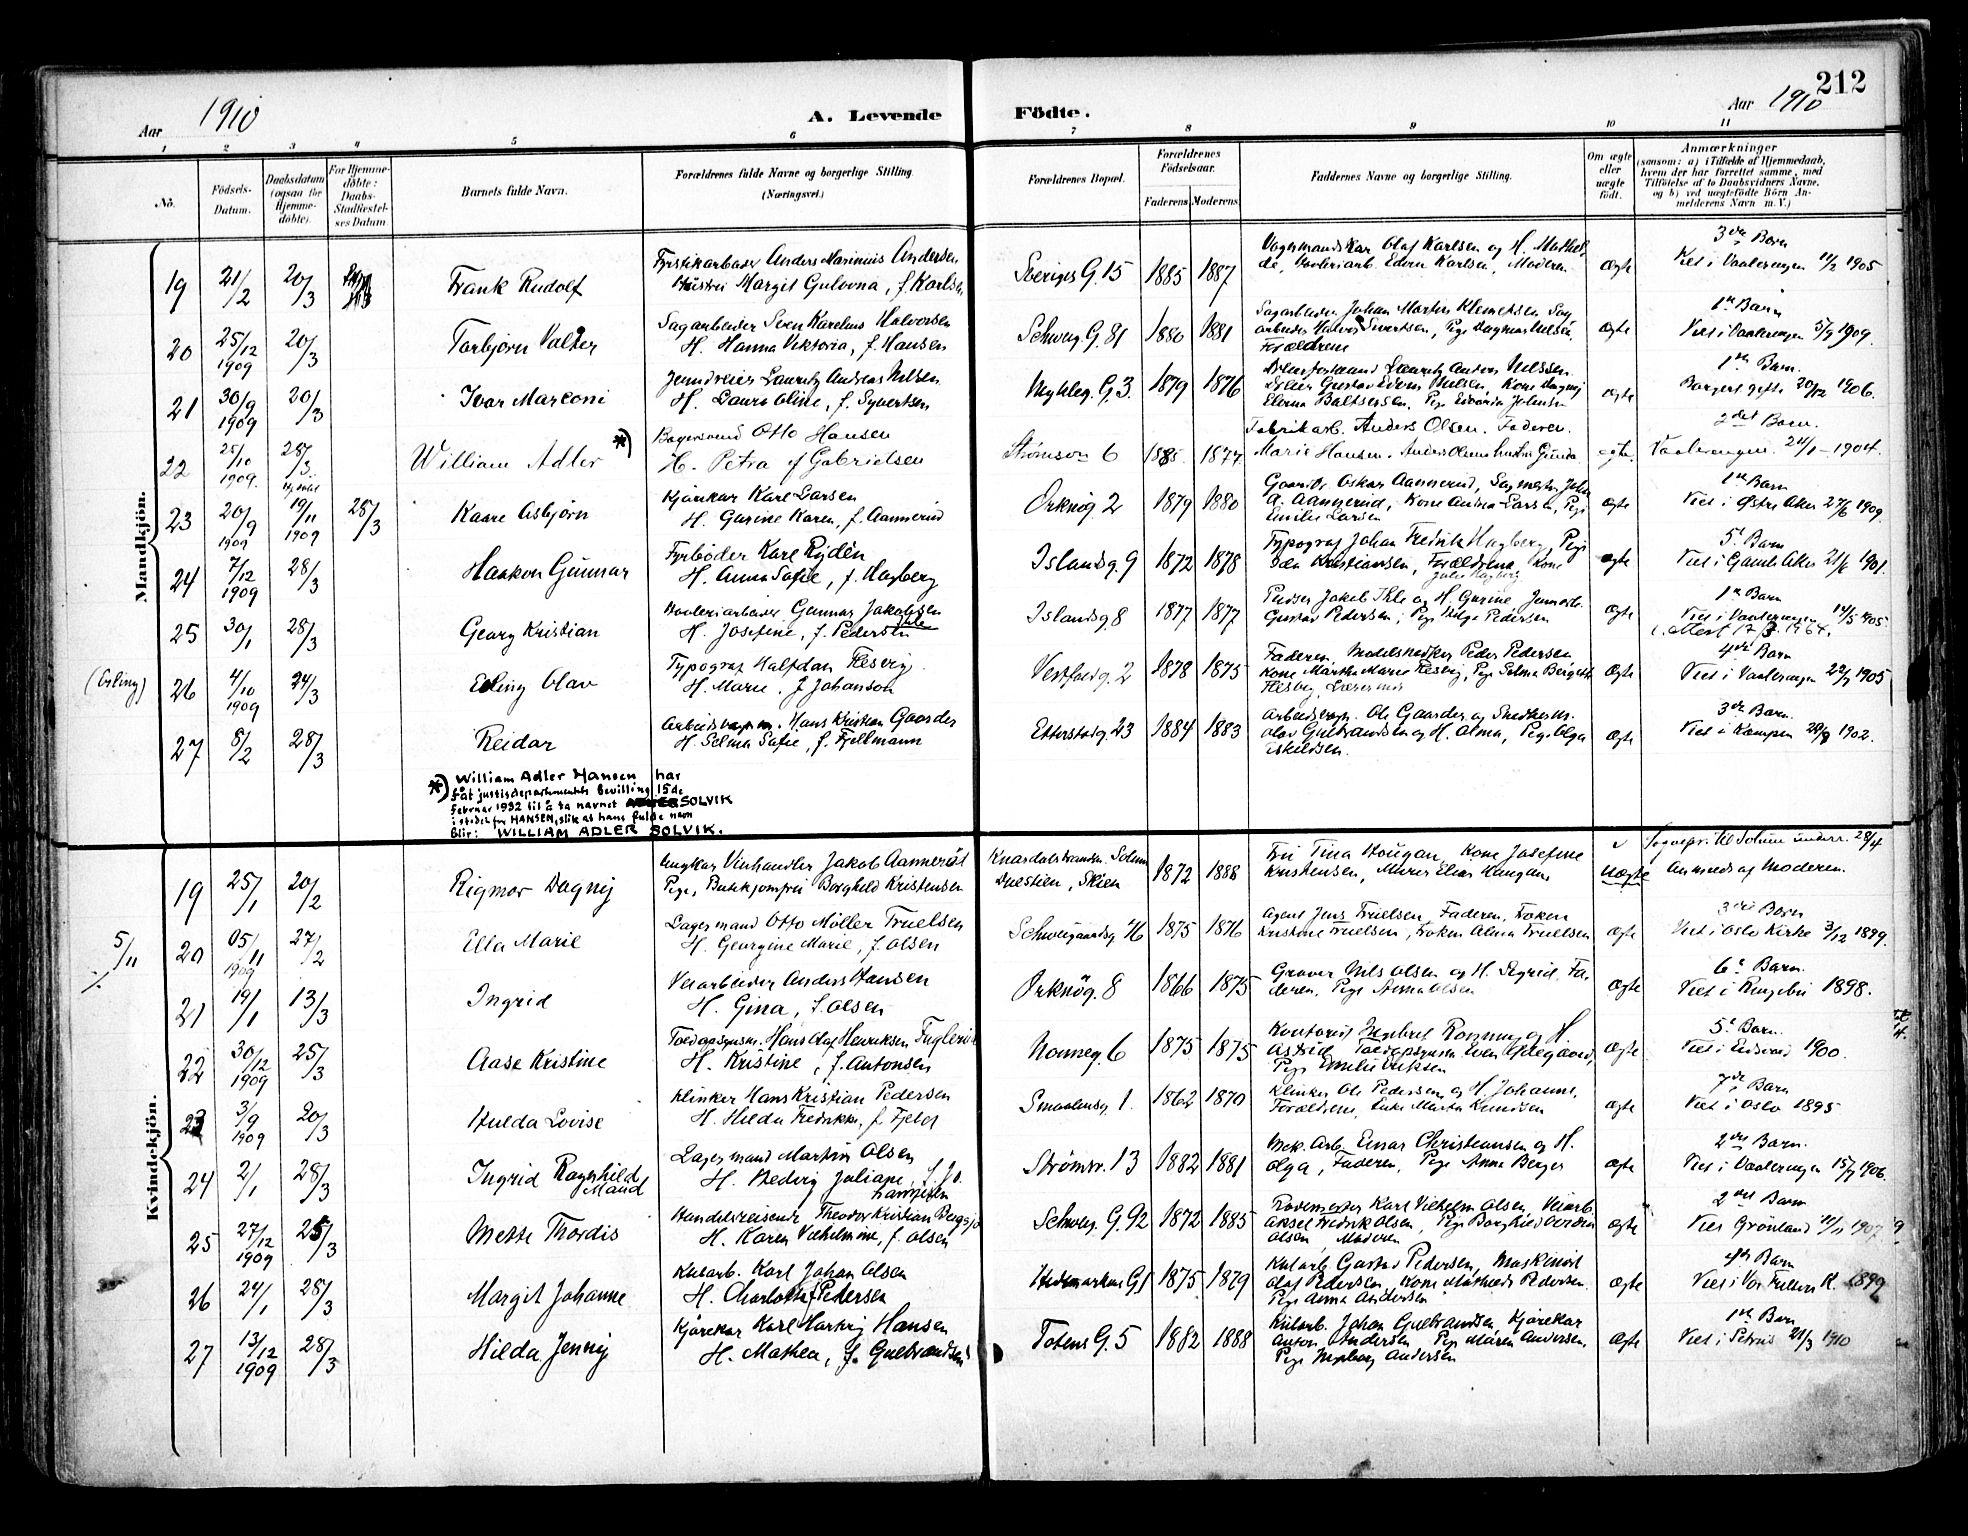 212
Aar 1910
A. Levende Födte.
Aar 1910
1 2 3 4 5 6 7 8 9 10 11
No. Födsels-Datum. Daabsdatum (ogsaa for Hjemmedöbte). For Hjemmedöbte: Daabs-Stadfæstelses Datum Barnets fulde Navn. Forældrenes fulde Navne og borgerlige Stilling. (Næringsvei.) Forældrenes Bopæl. Forældrenes Födselsaar. Faderens Moderens Faddernes Navne og borgerlige Stilling. Om ægte eller uægte födt. Anmærkninger (saasom: a) i Tilfælde af Hjemmedaab, hvem der har forrettet samme, med Tilföielse af to Daabsvidners Navne, og b) ved uægtefödte Börn Anmelderens Navn m. V.)
Mandkjön.
19 21/2 20/3 Frank Rudolf
Anders Marinius Andersen
Margit Gulovna, f. Karlsen
Sveriges G. 15 1885 1887
Olaf Karlsen og H. Mathil
de, Edvin Karlsen, Moderen
ægte
3die Barn
Viet i Vaalerengen 11/2 1905
20 25/12 1909 20/3 Torbjørn Valter
Sagarbeider Sven Karelius Halvorsen
H. Hanna Viktoria, f. Hansen
Schweig. G. 81 1880 1881
Sagarbeider Johan Martin Klemetsen Sag
arbeider Halvor Sivertsen, Pige Dagmar Nelsen,
Forældrene
ægte
1ste Barn
Viet i Vaalerengen 5/9 1909.
21 30/9 1909 20/3 Ivar Marconi
Lauritz Andreas Nilsen
H. Laura Oline, f. Syvertsen
Nykleg. G. 3. 1879 1876
Lauritz Anders Nilssen
Gustav Edvin Nilsen, Kone
Elerna Baltsersen, Pige Edvarda Johnsen
ægte
1ste Barn.
Borgerl. gifte 20/12 1906.
22 25/10 1909. 28/3. William Adler *)
Bagersvend Otto Hansen
H. Petra f Gabrielsen
Strømsv 6 1885. 1877
Fabrikarb. Anders Olsen. Faderen.
Marie Hansen. Anders Olsens hustru Gunda
ægte.
2det Barn.
Vaalerengen. 21/1 - 1904.
23 20/9 1909 19/11 1909 28/3 Kaare Asbjørn
Kjørekar Karl Larsen
H. Gurine Karen, f. Aannerud
Orknög. 2 1879 1880
Oskar Aannerud, Sagmester John
A. Aannerud, Kone Andrea Larsen, Pige
Emilie Larsen
ægte
1ste Barn
Viet i Østre Aker 27/6 1909.
24 7/12 1909 28/3 Haakon Gunnar
Fyrbøder Karl Rydén
H. Anna Sofie, f. Hagberg
Islandsg. 9 1872 1878
Typograf Johan Fredrik Hagberg, Pige
Kristiansen, Forældrene, Kone
Julie Hagberg
ægte
5te Barn
Viet i Gamle Aker 21/6 1901.
25 30/1 28/3 Georg Kristian
Gunnar Jakobsen
H. Josefine, f. Pedersen
Islandsg. 8 1877 1877
Pudser Jakob Ihle og H. Gurine
Gustav Pedersen, Pige Helga Pedersen
ægte
1ste Barn
Viet i Vaalerengen 14/5 1905
(Erling)
26 4/10 1909 24/3 Erling Olav
Typograf Halfdan Flesvig
H. Marie. f Johanson
Vestfoldg. 2 1878 1875
Faderen, Modelsnedker Peder Pedersen
Kone Martha Marie Flesvig, Pige Selma Bergeth
Flesvig, Lærerinde
ægte
4de Barn
Viet i Vaalerengen 22/7 1905
27 8/2 28/3 Reidar
Hans Kristian Gaarder
H. Selma Sofie, f. Fjellmann
Etterstadg. 23 1884 1883
Ole Gaarder og Snedkersv.
Olav Gulbrandsen og H. Alma, Pige Olga
Eskildsen.
ægte
3die Barn.
Viet i Kampen 20/9 1902.
*) William Adler Hansen har
fåt justisdepartementets bevilling 15de
februar 1932 til å ta navnet SOLVIK
istedetfor HANSEN, slik at hans fulde navn
blir: WILLIAM ADLER SOLVIK.
Kvindekjön.
19 25/1 20/2 Rigmor Dagny
Ungkar Vinhandler Jakob Aannerød
Pige, Butikjomfru Borghild Kristensen
Knardalstranden. Solum
Skien 1872 1888
Fru Tina Hougan, Kone Josefine
Kristensen, Murer Elias Haugan
uægte
til Solum underr. 28/4
Anmeldt af Moderen.
5/11
20 05/11 1909 27/2 Ella Marie
Lagermand Otto Møller Truelsen
H. Georgine Marie, f. Olsen
Schweigaardsg 76 1875 1876
Agent Jens Truelsen, Faderen, Frøken
Kristine Truelsen, Frøken Alma Truelsen
ægte
3die Barn
Viet i Oslo Kirke 3/12 1899.
21 19/1 13/3 Ingrid
Anders Hansen
H. Gina, f. Olsen
Orknög. 8 1866 1875
Graver Nils Olsen og H. Ingrid, Fa-
deren, Pige Olsen
ægte
6te Barn.
Viet i Ringebu 1898.
22 30/12 1909 25/3 Aase Kristine
Toldopsynsm. Hans Olaf Henriksen Fuglerud
H. Kristine, f. Antonsen
Nonneg. 6 1875 1875
Kontorist Ingebret Ronning og H.
Astrid, Toldopsynsm Even Hildegaard,
Pige Emilie Eriksen
ægte
5te Barn.
Viet i Eidsvold 1900.
23 3/9 1909 20/3 Hulda Lovise
Klinker Hans Kristian Pedersen
H. Hilda Fredrikke, f Fjeld
Smaalensg 1. 1862 1870
Klinker Ole Pedersen og H. Johanne,
Forældrene, Enke Marta Knudsen
ægte
7de Barn
Viet i Oslo 1895
24 2/1 28/3 Ingrid Ragnhild
Maud
Lagermand Martin Olsen
H. Hedvig Juliane, f. Jo-
hannesen
Strömsv. 13 1882 1881
Mek. Arb. Einar Christiansen og H.
Olga, Faderen, Pige Anna Berger
ægte
2det Barn.
Viet i Vaalerengen 15/7 1906.
25 27/12 1909 25/3 Mette Thordis
Handelsreisende Theodor Kristian Bergsjø
H. Karen Vilhelmine, f. Olsen
Schweig. G. 92 1872 1885
Rodemester Karl Vilhelm Olsen, Visarb.
Aksel Fredrik Olsen, Pige Borghild
Olsen, Moderen
ægte
2det Barn
Viet Grönland 1907
26 24/1 28/3 Margit Johanne
Kularb. Karl Johan Olsen
H. Charlotte f Pedersen
Hedemarkens G 1 1875. 1879
Kularb. Gustav Pedersen, Maskinist
Olaf Pedersen, Kone Mathilde Pedersen
Pige Anna Andersen
ægte
4de Barn
Viet i Vor Frelsers K. 1899
27 13/12 1909 28/3 Hilda Jenny
Kjørekar Karl Hartvig Hansen
H. Mathea, f. Gulbrandsen
Totens G. 5 1882 1888
Kularb. Johan Gulbrandsen Kjørekar
Anton Andersen Pige Maren Andersen,
Pige Ingeborg Andersen
ægte
1ste Barn
Viet i Petrus 21/3 1910